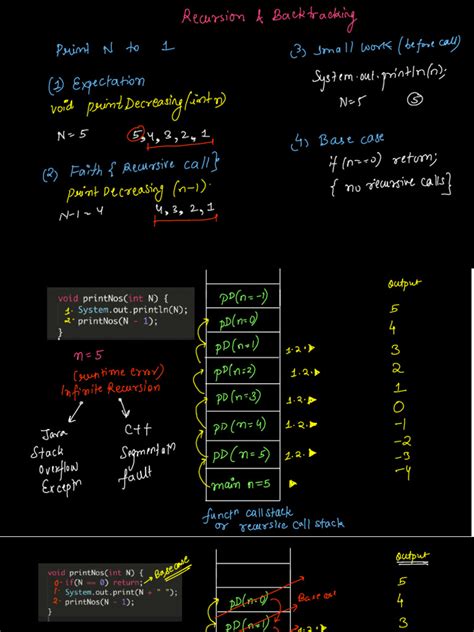 Recursion & Backtracking
Print N to 1
(1) Expectation
void printDecreasing(int n)
N=5 5, 4, 3, 2, 1
(2) Faith { Recursive call }
printDecreasing (n-1).
N-1=4 4, 3, 2, 1
(3) Small work (before call)
System.out.println(n);
N=5 5
(4) Base case
if (n==0) return;
{ no recursive calls }
void printNos(int N) {
1. System.out.println(N);
2. printNos(N - 1);
}
n=5
(runtime error)
Infinite Recursion
Java
Stack
Overflow
Exceptn
C++
Segmentatn
fault
pD(n=-1)
pD(n=0)
pD(n=1) 1.2.
pD(n=2) 1.2.
pD(n=3) 1.2.
pD(n=4) 1.2.
pD(n=5) 1.2.
main n=5
functn call stack
or recursive call stack
Output
5
4
3
2
1
0
-1
-2
-3
-4
void printNos(int N) {
0. if(N == 0) return; Base case
1. System.out.print(N + " ");
2. printNos(N - 1);
}
pD(n=0) Base case
pD(n=1)
Output
5
4
3